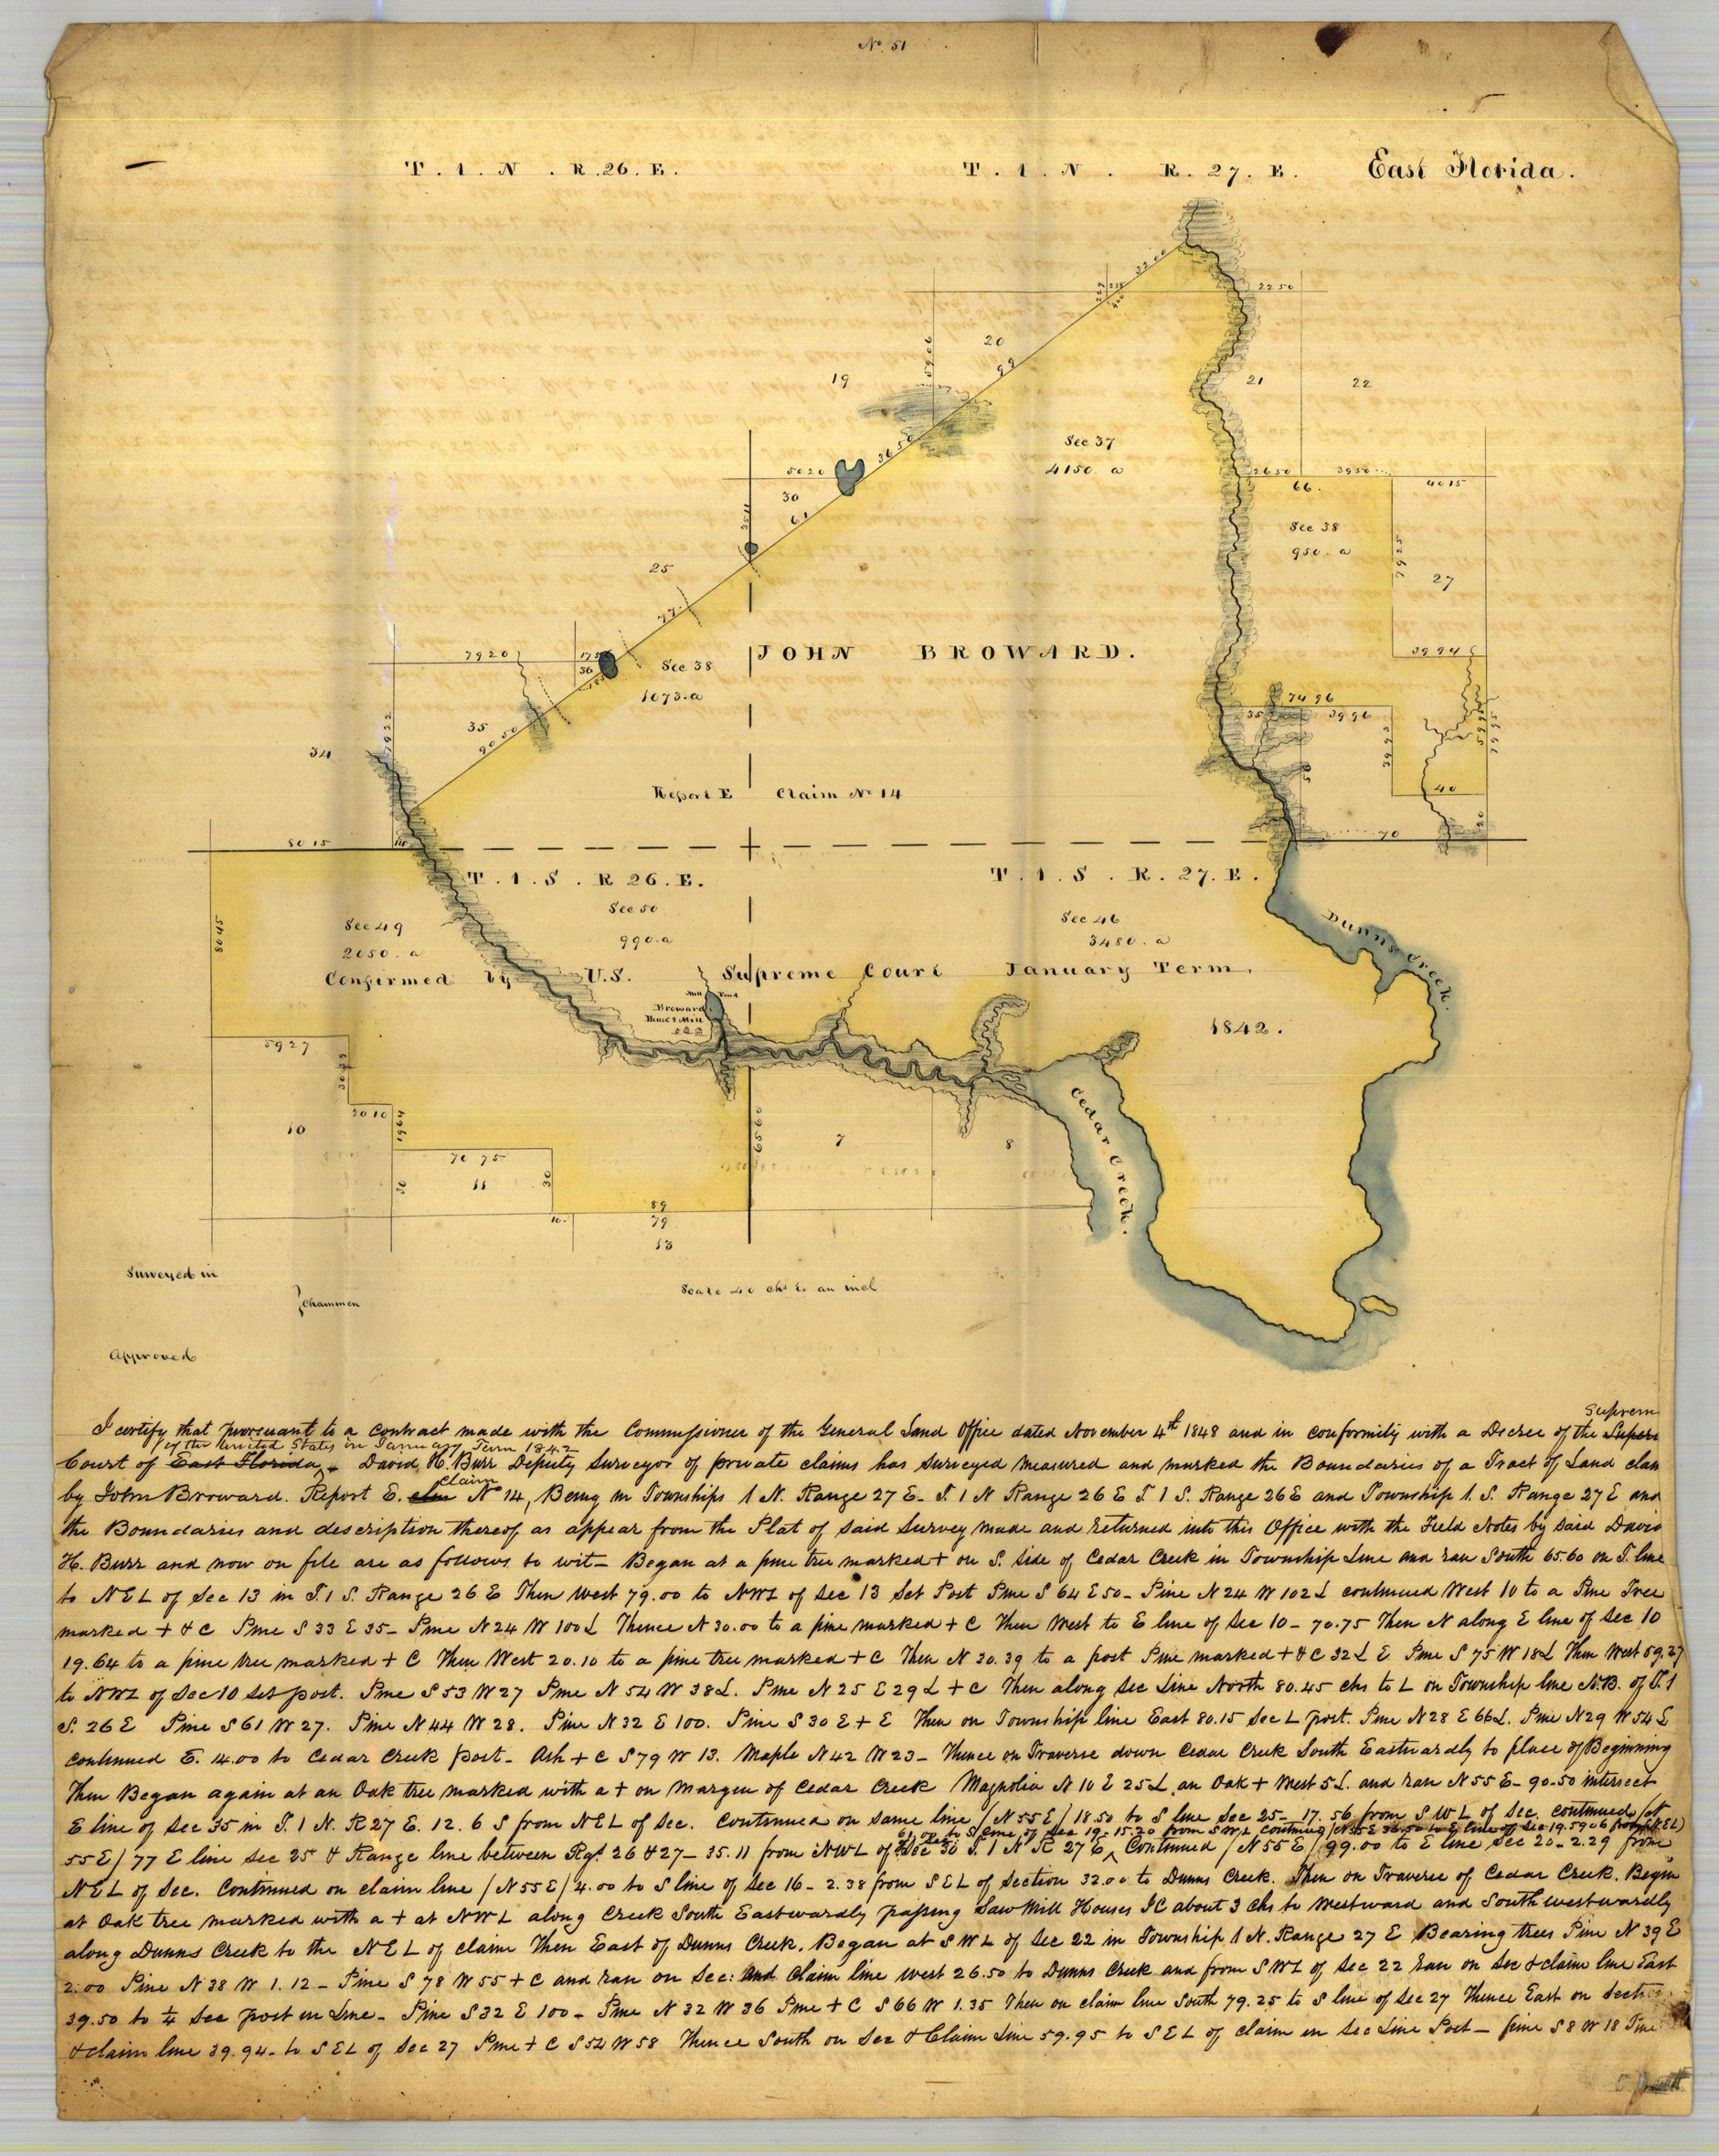 No 51
T. 1. N. R. 26. E.
T. 1. N. R. 27. E.
East Florida.
32 00
2 38
4 00
22 50
59 06
20
99
19
21
22
Sec 37
4150. a
36 50
50 20
30
61
35 11
26 50
39 50
40 15
66.
Sec 38
950. a
79 25
27
25
77
JOHN BROWARD.
79 20
17 56
56
Sec 38
1073. a
39 94
74 96
35
39 96
59 95
79 95
39 93
35
90 50
34
79 22
Report E Claim No 14
40
50
70
20
80 15
14
T. 1. S. R 26. E.
T. 1. S. R. 27. E.
Sec 50
990. a
Sec 46
3480. a
Sec 49
2050. a
80 45
Dunns Creek.
Confirmed by U.S. Supreme Court January Term.
1842.
Mill Pond
Broward
House & Mill
59 27
30 39
20 10
19 64
10
Cedar Creek.
65 60
7
8
70 75
11
30
50
89
10.
79
13
Surveyed in
Chainmen
Scale 40 chs to an inch
Approved
Supreme
I certify that pursuant to a contract made with the Commissioner of the General Land Office dated November 4th 1848 and in conformity with a Decree of the Superi
of the United States in January Term 1842
Court of East Florida David H. Burr Deputy Surveyor of private claims has surveyed measured and marked the Boundaries of a Tract of Land claim
claim
by John Broward. Report E. No 14, Being in Townships 1 N. Range 27 E. T. 1 N Range 26 E T 1 S. Range 26 E and Township 1. S. Range 27 E and
the Boundaries and description thereof as appear from the Plat of said Survey made and returned into this Office with the Field Notes by said David
H. Burr and now on file are as follows to wit - Began at a pine tree marked + on S. side of Cedar Creek in Township Line and ran South 65.60 on T. line
to N E L of Sec 13 in T. 1 S. Range 26 E Then West 79.00 to NWL of Sec 13 Set Post Pine S 64 E 50 - Pine N 24 W 102 L continued West 10 to a Pine Tree
marked + & C Pine S 33 E 35 - Pine N 24 W 100 L Thence N 30.00 to a pine marked + C Then West to E line of Sec 10 - 70.75 Then N along E line of Sec 10
19.64 to a pine tree marked + C Then West 20.10 to a pine tree marked + C Then N 30.39 to a post Pine marked + & C 32 L E Pine S 75 W 18 L Then West 59.27
to NWL of Sec 10 set post. Pine S 53 W 27 Pine N 54 W 38 L. Pine N 25 E 29 L + C Then along Sec Line North 80.45 chs to L on Township line N.B. of T. 1
S. 26 E Pine S 61 W 27. Pine N 44 W 28. Pine N 32 E 100. Pine S 30 E + E Then on Township line East 80.15 Sec L post. Pine N 28 E 66 L. Pine N 29 W 54 L
continued E. 14.00 to Cedar Creek post - Ash + C S 79 W 13. Maple N 42 W 23 - Thence on Traverse down Cedar Creek South Eastwardly to place of Beginning
Then Began again at an Oak tree marked with a + on Margin of Cedar Creek Magnolia N 10 E 25 L an Oak + West 5 L. and ran N 55 E - 90.50 intersect
E line of Sec 35 in T. 1 N. R 27 E. 12. 6 S from N E L of Sec. Continued on same line (N 55 E) 18.50 to S line Sec 25 - 17. 56 from S W L of Sec. continued (at
61.00 to S line of Sec 19 - 15.20 from S W L continued (N 55 E 36.50 to E line of Sec 19. 59 06 from N E L)
55 E) 77 E line Sec 25 & Range line between Rgs 26 & 27 - 35.11 from NWL of Sec 30 T. 1 N R 27 E, Continued (N 55 E) 99.00 to E line Sec 20 - 2.29 from
N E L of Sec. Continued on claim line (N 55 E) 4.00 to S line of Sec 16 - 2.38 from S E L of Section 32.00 to Dunns Creek. Then on Traverse of Cedar Creek. Begin
at Oak tree marked with a + at NWL along Creek South Eastwardly passing Saw Mill Houses &C about 3 chs to Westward and Southwestwardly
along Dunns Creek to the N E L of claim Then East of Dunns Creek. Began at S W L of Sec 22 in Township 1 N. Range 27 E Bearing trees Pine N 39 E
2.00 Pine N 38 W 1.12 - Pine S 78 W 55 + C and ran on Sec: and Claim line West 26.50 to Dunns Creek and from S W L of Sec 22 ran on Sec & claim line East
39.50 to 1/4 Sec post in Line - Pine S 32 E 100 - Pine N 32 W 36 Pine + C S 66 W 1.35 Then on claim line South 79.25 to S line of Sec 27 Thence East on Section
& claim line 39.94 - to S E L of Sec 27 Pine + C S 54 W 58 Thence South on Sec & Claim Line 59.95 to S E L of claim in Sec Line Post - pine S 8 W 18 Pine